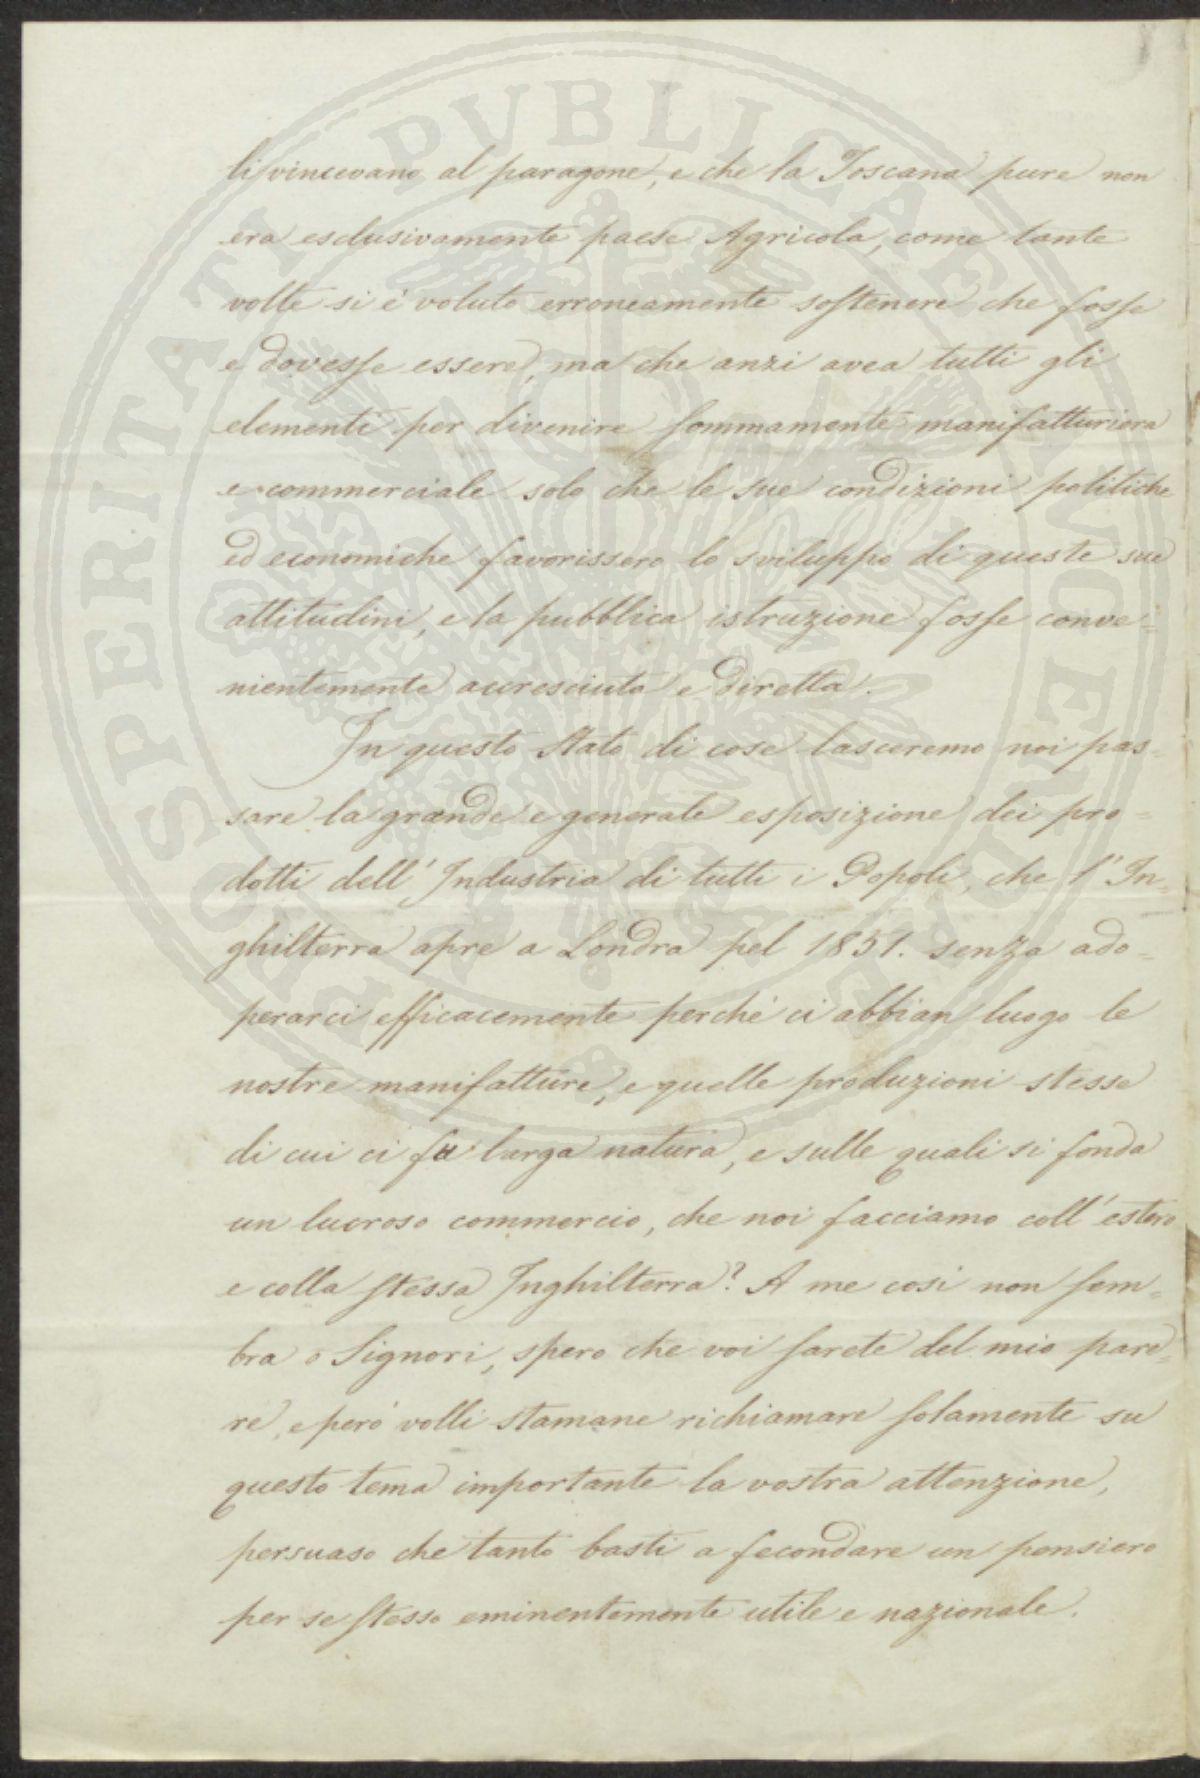 li vincevano al paragone, e che la Toscana pure non
era esclusivamente paese Agricola, come tante
volte si è voluto erroneamente sostenere che fosse
e dovesse essere, ma che anzi avea tutti gli
elementi per divenire sommamente manifatturiera
e commerciale solo che le sue condizioni politiche
ed economiche favorissero lo sviluppo di queste sue
attitudini, e la pubblica istruzione fosse conve=
nientemente accresciuta e diretta.
In questo stato di cose lasceremo noi pas=
sare la grande e generale esposizione dei pro=
dotti dell'Industria di tutti i Popoli, che l'In=
ghilterra apre a Londra pel 1851. senza ado=
perarci efficacemente perché ci abbian luogo le
nostre manifatture, e quelle produzioni stesse
di cui ci fu larga natura, e sulle quali si fonda
un lucroso commercio, che noi facciamo coll'estero
e colla stessa Inghilterra? A me così non sem=
bra o Signori, spero che voi sarete del mio pare=
re, e però volli stamane richiamare solamente su
questo tema importante la vostra attenzione,
persuaso che tanto basti a fecondare un pensiero
per se stesso eminentemente utile e nazionale.
PROSPERITATI PUBLICAE AUGENDAE